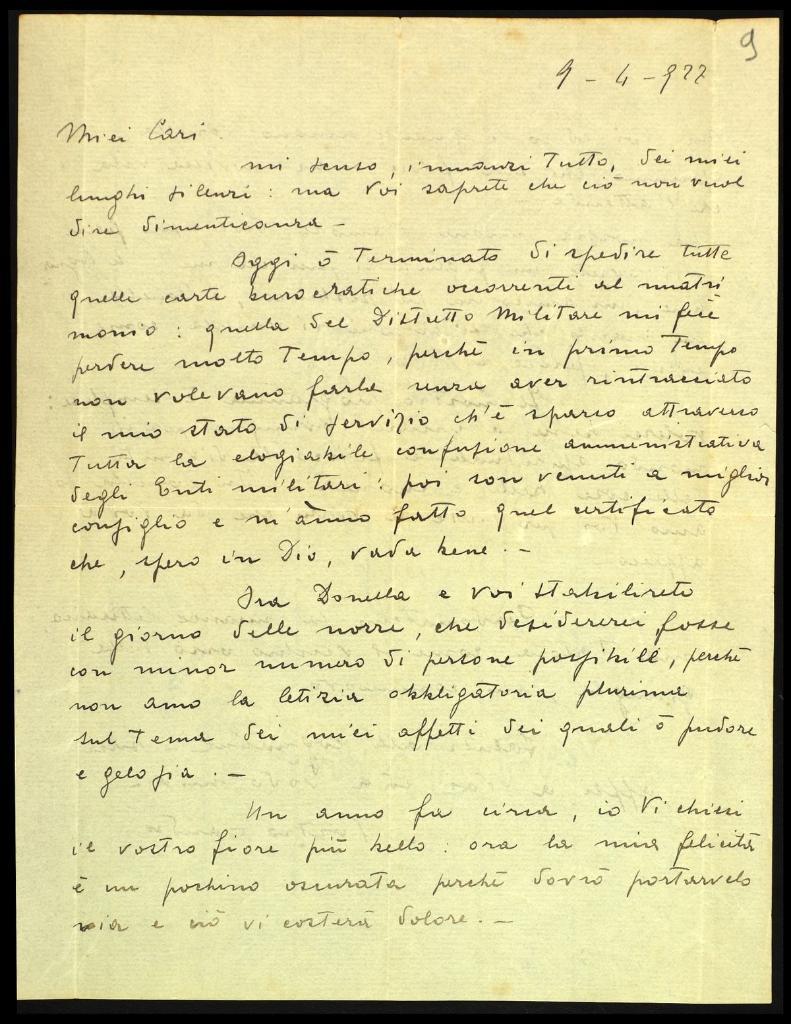 9
9 - 4 - 922
Miei Cari
mi scuso, innanzi tutto, dei miei
lunghi silenzi: ma Voi saprete che ciò non vuol
dire dimenticanza -
Oggi ò terminato di spedire tutte
quelle carte burocratiche occorrenti al matri
monio: quella del Distretto Militare mi fece
perdere molto tempo, perchè in primo tempo
non volevano farla senza aver rintracciato
il mio stato di servizio ch'è sparso attraverso
tutta la elogiabile confusione amministrativa
degli Enti militari: poi son venuti a miglior
consiglio e m'ànno fatto quel certificato
che, spero in Dio, vada bene. -
Ora Donella e Voi stabilirete
il giorno delle nozze, che desidererei fosse
con minor numero di persone possibile, perchè
non amo la letizia obbligatoria plurima
sul tema dei miei affetti dei quali ò pudore
e gelosia. -
Un anno fa circa, io Vi chiesi
il vostro fiore più bello: ora la mia felicità
è un pochino oscurata perchè dovrò portarvelo
via e ciò vi costerà dolore. -